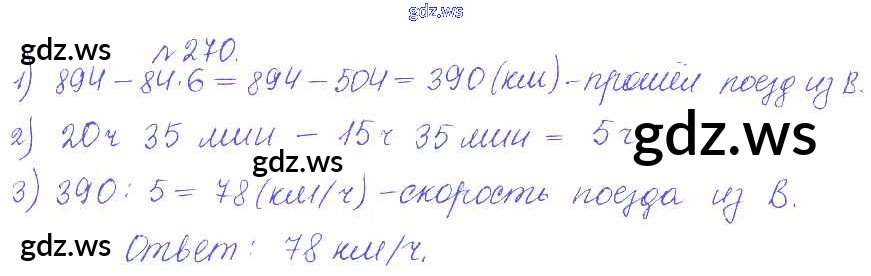 gdz.ws
gdz.ws
№ 270.
1) 894 – 84·6 = 894 – 504 = 390 (км) – прошёл поезд из В.
2) 20 ч 35 мин – 15 ч 35 мин = 5 ч
gdz.ws
gdz.ws
3) 390 : 5 = 78 (км/ч) – скорость поезда из В.
gdz.ws
Ответ: 78 км/ч.